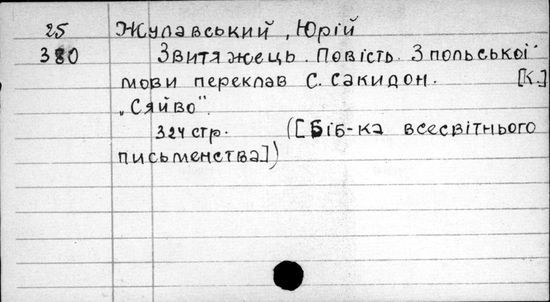 25 Жулавський, Юрій
380 Звитяжець. Повість. З польської
мови переклав С. Сакидон. [К.]
„Сяйво".
324 стр. ([Біб-ка всесвітнього
письменства])